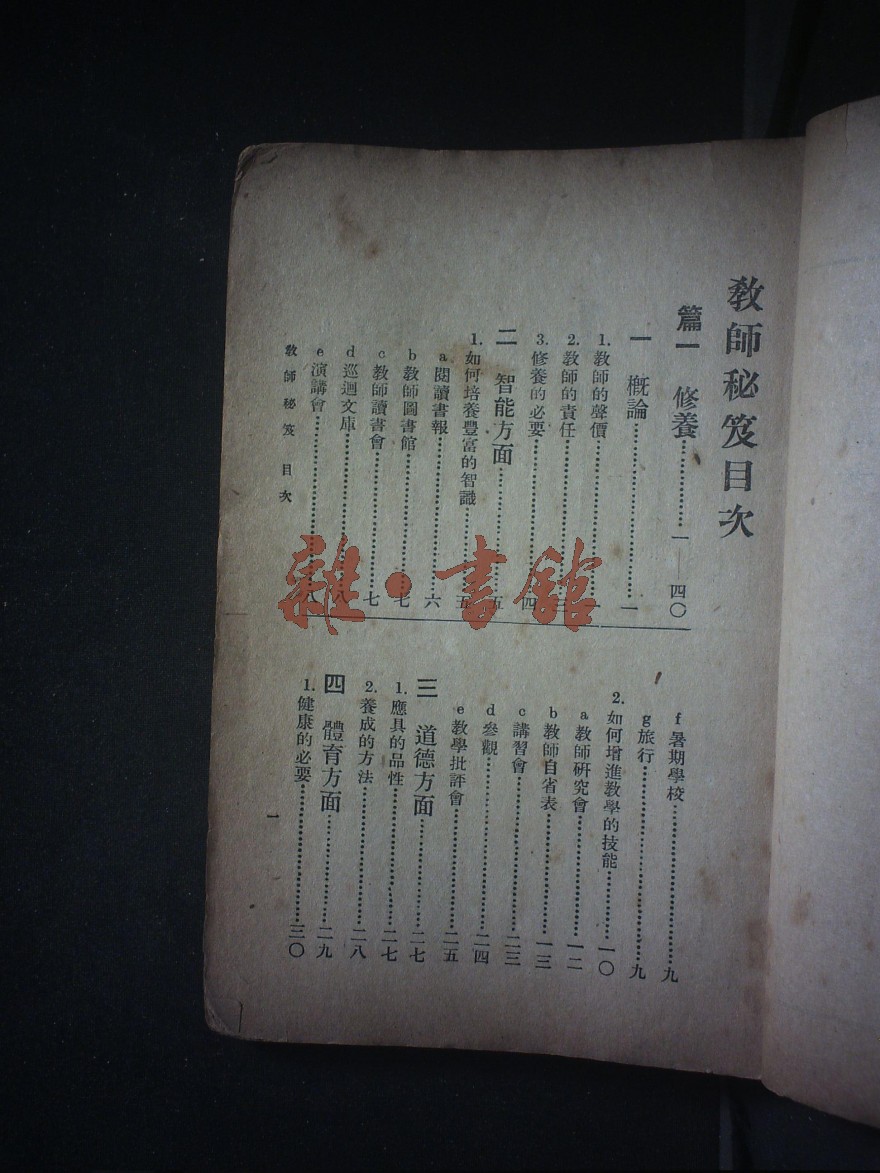 教師秘笈目次
篇一 修養……………一—四〇
一 概論……………一
1.教師的聲價……………一
2.教師的責任……………三
3.修養的必要……………四
二 智能方面……………五
1.如何培養豐富的智識……………五
a閱讀書報……………六
b教師圖書館……………七
c教師讀書會……………七
d巡迴文庫……………八
e演講會……………八
f暑期學校……………九
g旅行……………九
2.如何增進教學的技能……………一〇
a教師研究會……………一二
b教師自省表……………一三
c講習會……………二三
d參觀……………二四
e教學批評會……………二五
三 道德方面……………二七
1.應具的品性……………二七
2.養成的方法……………二八
四 體育方面……………二九
1.健康的必要……………三〇
教師秘笈 目次
1
雜·書館